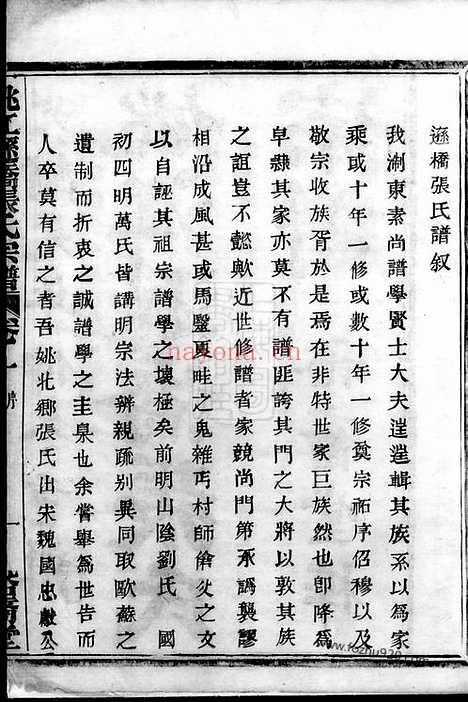 遜橋張氏譜叙
我淛東素尚譜學賢士大夫䢛䢛輯其族系以為家
乘或十年一修或數十年一修奠宗祏序佋穆以及
敬宗收族胥於是焉在非特世家巨族然也卽降為
皁隸其家亦莫不有譜匪誇其門之大將以敦其族
之誼豈不懿歟近世修譜者家競尚門第承譌襲謬
相沿成風甚或馬鬣夏畦之鬼雜丐村師傖父之文
以自誣其祖宗譜學之壊極矣前明山陰劉氏 國
初四明萬氏皆講明宗法辨親疏别異同取歐蘇之
遺制而折衷之誠譜學之圭臬也余嘗舉為世告而
人卒莫有信之者吾姚北鄉張氏出宋魏國忠獻公
姚江 橋張氏宗譜 卷 一
一
hayona.com
www.fozhu920.com